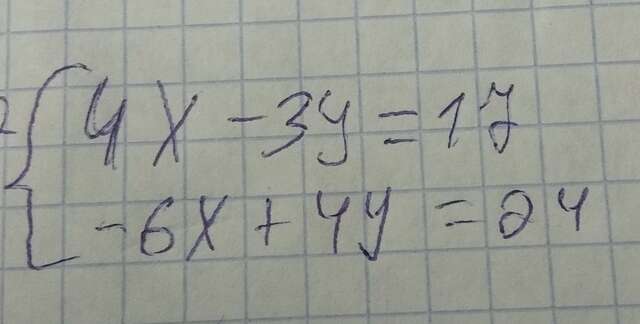 4x - 3y = 17
-6x + 4y = 24